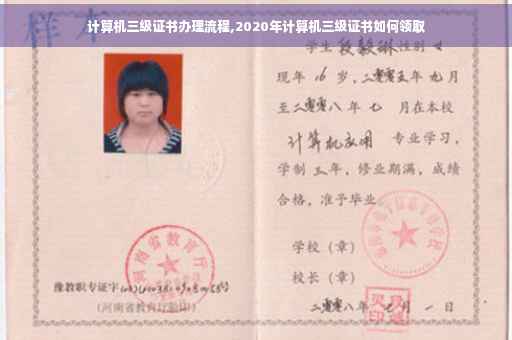 计算机三级证书办理流程,2020年计算机三级证书如何领取
样本
学生段毅琳性别女
现年16岁,二零零五年九月
至二零零八年七月在本校
计算机应用 专业学习,
学制三年,修业期满,成绩
合格,准予毕业。
学校(章)
校长(章)
二零零八年七月一日
河南省教育厅
豫教职专证字
(河南省教育厅验印)